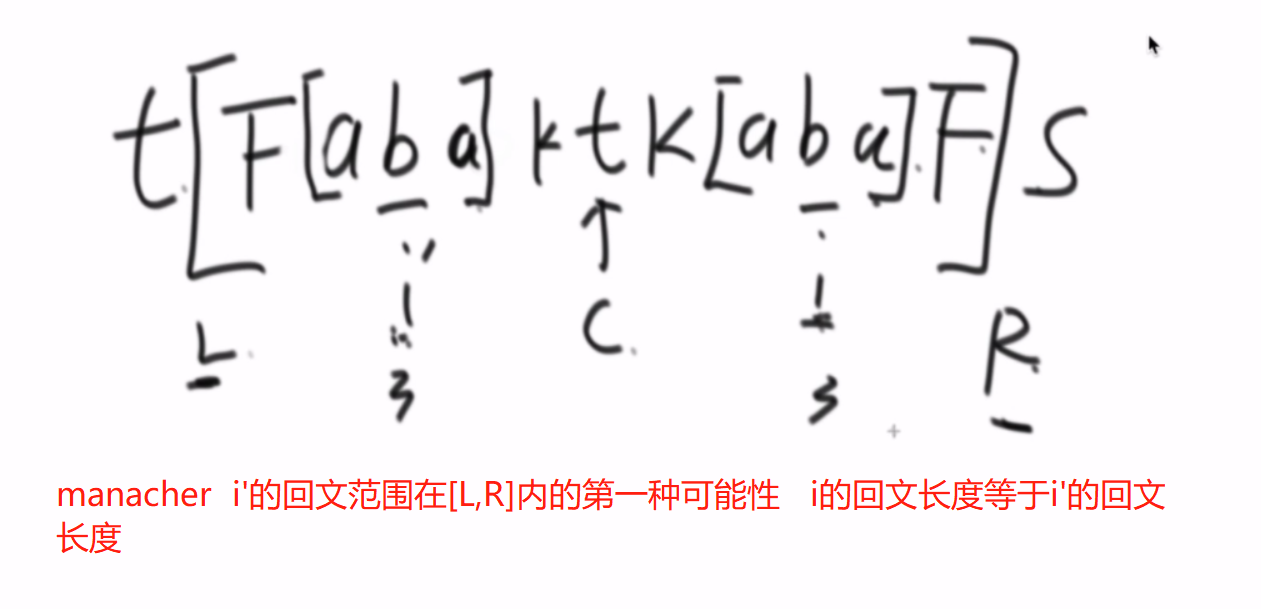 t[F[aba]ktk[aba]F]S
i' i
L C R
3 3
manacher i'的回文范围在[L,R]内的第一种可能性 i的回文长度等于i'的回文
长度